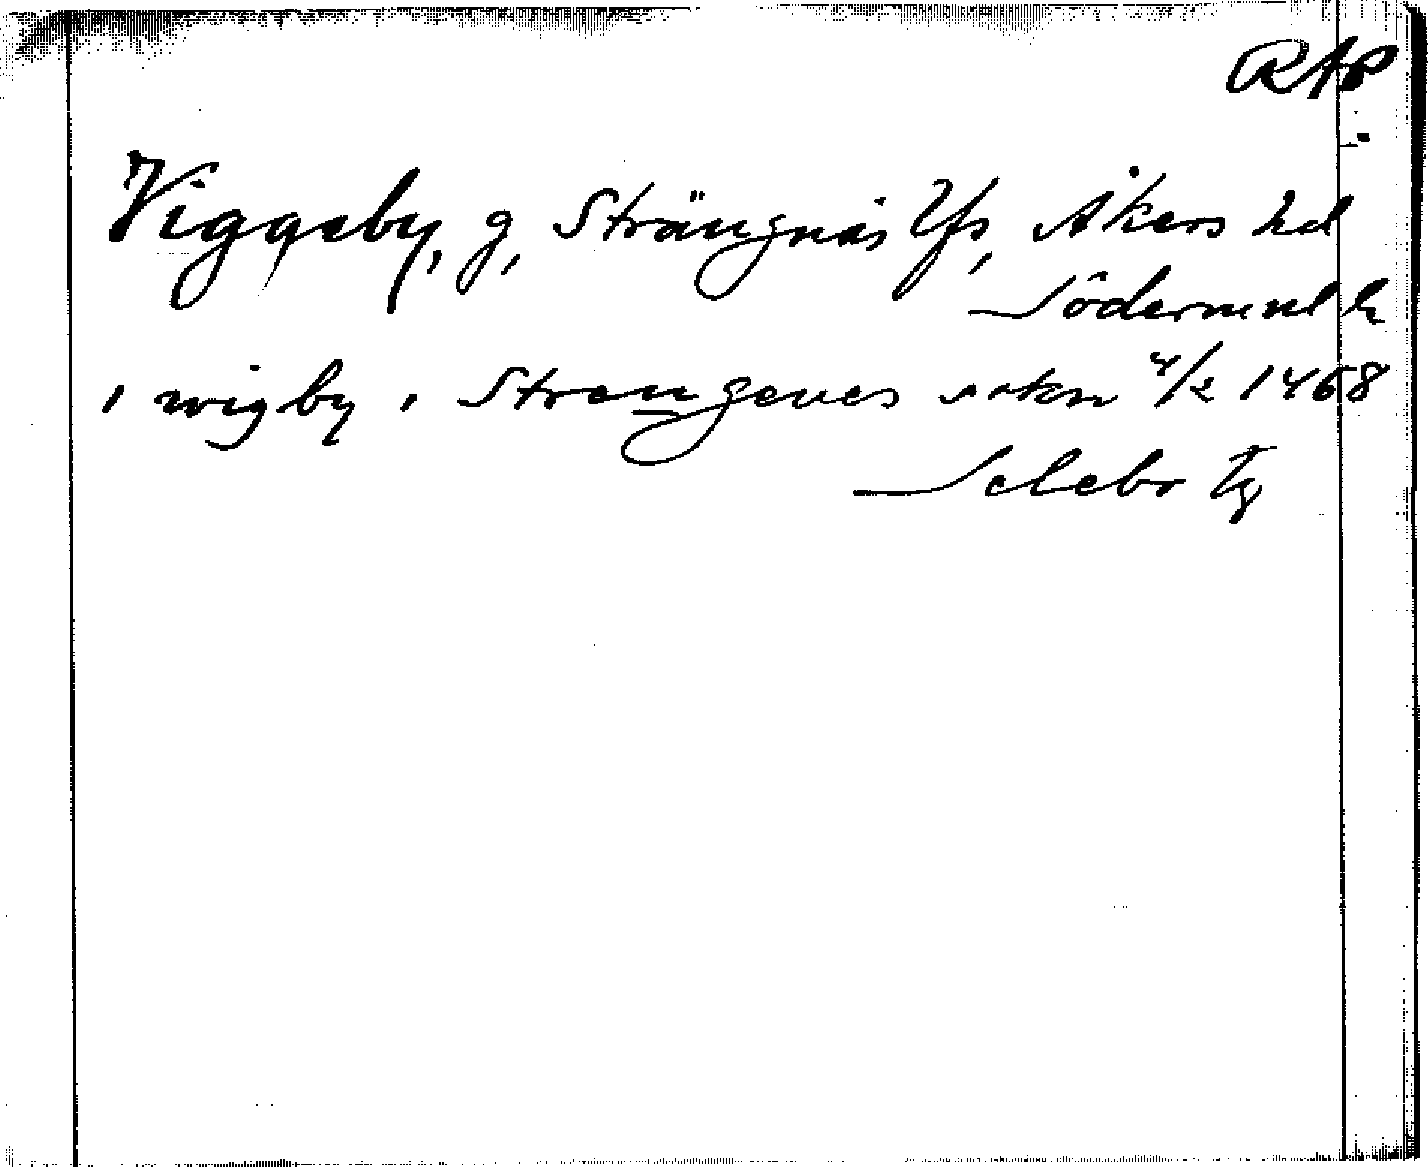 RAP
Viggeby, g, Strängnäs lfs, Åkers hd
Södermnl l
i wigby i Strengenes sokn 4/2 1468
Selebo Tg